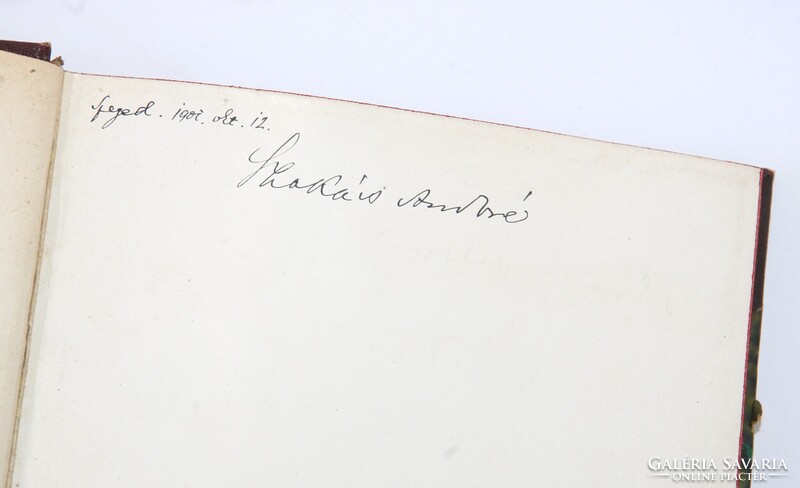 Szeged. 1907. okt. 12.
Szakács Andorné
GALÉRIA SAVARIA
ONLINE PIACTÉR